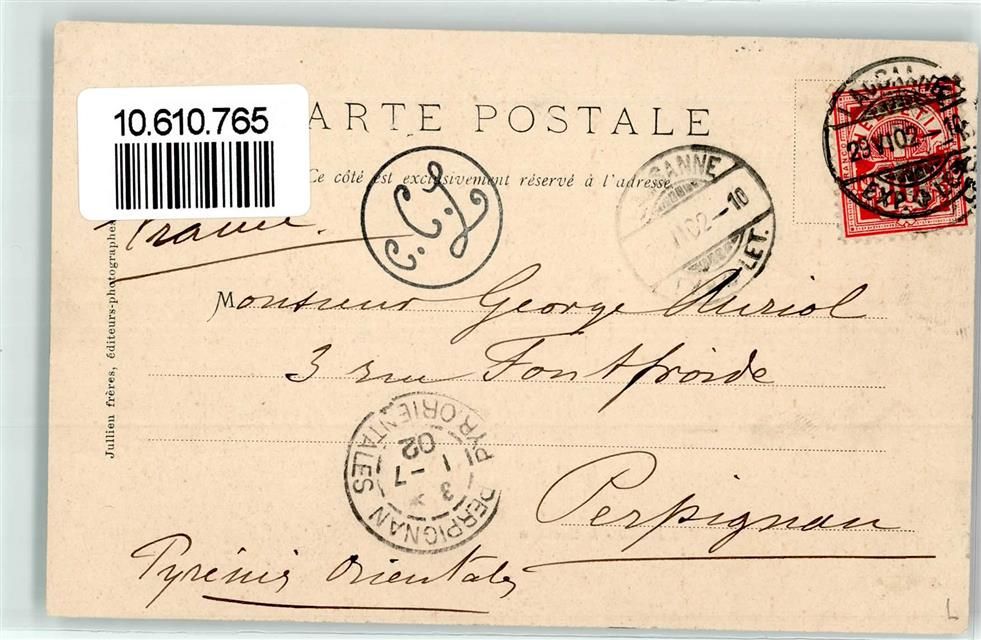 10.610.765
ARTE POSTALE
Ce côté est exclusivement réservé à l'adresse.
France.
Monsieur George Auriol
3 rue Fontfroide
Perpignan
Pyrénées Orientales
Jullien frères, éditeurs-photographes
SANNE
VI 02 - 10
LET.
HELVETIA
29 VI 02
EXP. LET.
PERPIGNAN
PYR. ORIENTALES
3
1 -7
02